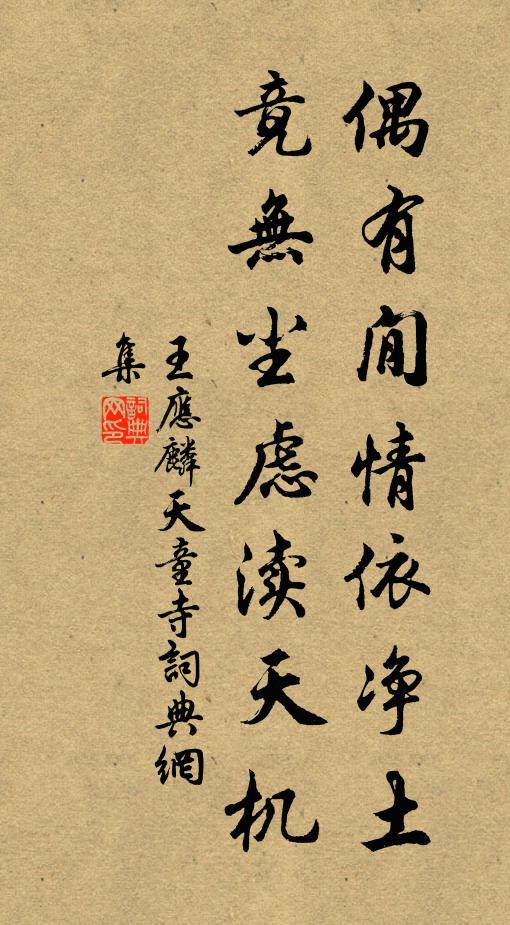 偶有閒情依净土
竟無尘慮渎天机
王應麟天童寺詞典網
集
詞典网印